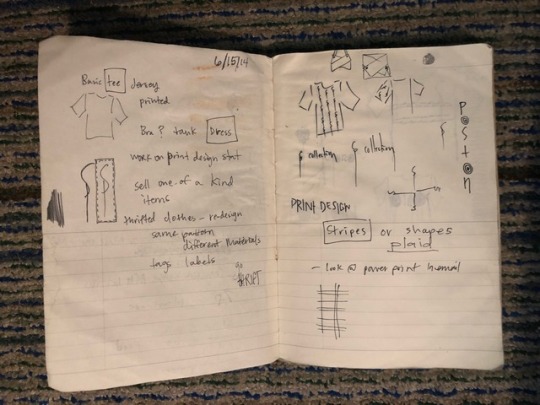 6/15/14
Basic tee Jersey
printed
Bra? tank Dress
work on print design
sell one of a kind
items
thrifted clothes - redesign
same pattern
different materials
tags labels
collection
collection
Poston
PRINT DESIGN
Stripes or shapes
plaid
- look @ power print